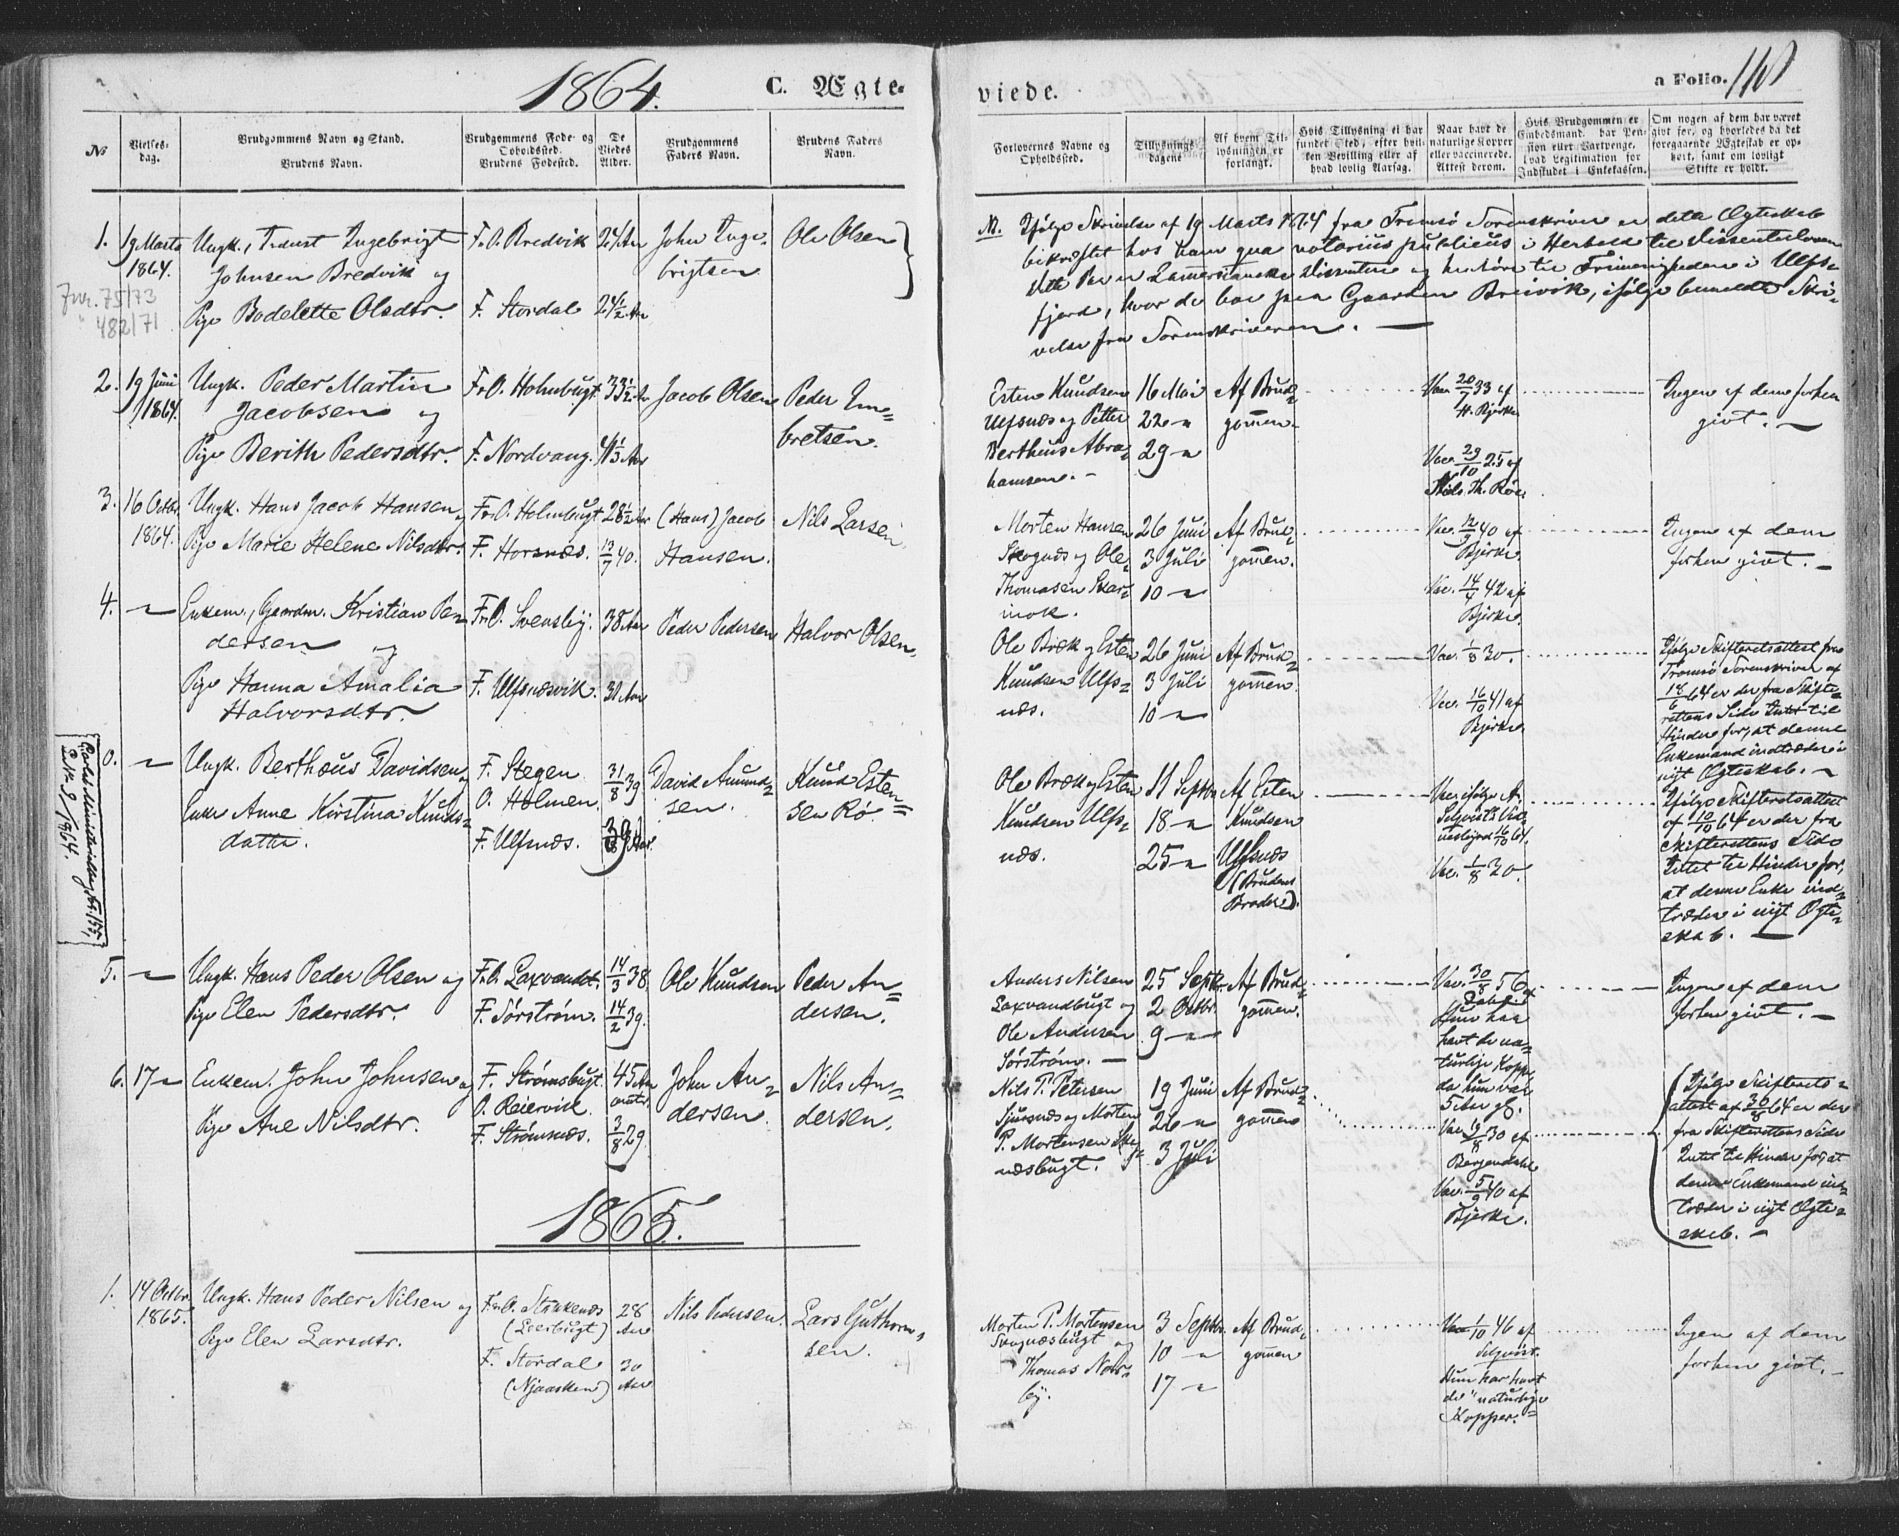 1864.
C. Ægte-
viede.
a Folio. 110
No
Vielses-
dag.
Brudgommens Navn og Stand.
Brudens Navn.
Brudgommens Føde- og
Opholdssted.
Brudens Fødested.
De
Viedes
Alder.
Brudgommens
Faders Navn.
Brudens Faders
Navn.
Forlovernes Navne og
Opholdssted.
Tillysnings-
dagene
Af hvem Til-
lysningen er
forlangt.
Hvis Tillysning ei har
fundet Sted, efter hvil-
ken Bevilling eller af
hvad lovlig Aarsag.
Naar havt de
naturlige Kopper
eller vaccinerede.
Attest derom.
Hvis Brudgommen er
Embedsmand, har Pen-
sion eller Vartpenge,
hvad Legitimation for
Indskudet i Enkekassen.
Om nogen af dem har været
givt før, og hvorledes da det
foregaaende Ægteskab er op-
hørt, samt om lovligt
Skifte er holdt.
1. 19 Marts
1864.
Ungk., Ingebrigt
Johnsen Bredvik og
Pige Bodelette Olsdtr.
F.O. Bredvik
F. Stordal
24 Aar
24½ Aar
John Inge-
brigtsen
Ole Olsen
Jnr. 75/73
" 482/71
Ifølge Skrivelse af 19 Marts 1864 fra Tromsø Sorenskriver er dette Ægteskab
bekræftet hos ham qua notarius publicus i Herhold til Dissenterloven
dette Par er Dissentere og henhøre til Frimenigheden i Ulfs-
fjord, hvor de bor paa Gaarden Breivik, ifølge bemeldte Skri-
velse fra Sorenskriveren. —
2. 19 Juni
1864.
Ungk. Peder Martin
Jacobsen og
Pige Berith Pedersdtr.
F.O. Holmbugt
F. Nordvang.
33½ Aar
41⅓ Aar
Jacob Olsen
Peder Em-
bretsen.
Esten Knudsen
Ulfsnæs og Petter
Bertheus Abra-
hamsen. -
16 Mai
22 -
29 -
Af Brud-
gommen.
Vac. 20/7 33 af
H. Bjerke
Vac. 29/10 25 af
Niels Th. Røe.
Ingen af dem forhen
givt. —
3. 16 Octbr.
1864.
Ungk. Hans Jacob Hansen og
Pige Marie Helene Nilsdtr.
F.O. Holmbugt
F. Horsnæs.
28½ Aar
13/7 40.
(Hans) Jacob
Hansen.
Nils Larsen.
Morten Hansen
Skognæs og Ole
Thomasen Skar-
mok.
26 Juni
3 Juli
10 -
Af Brud-
gommen.
Vac. 12/7 40 af
Bjerke.
Vac. 14/4 42 af
Bjerke.
Ingen af dem
forhen givt. —
4. -
Enkem., Gaardm. Kristian Pe-
dersen og
Pige Hanna Amalia
Halvorsdtr.
F.O. Svensby.
F. Ulfsnæsvik.
38 Aar
31 Aar
Peder Pedersen
Halvor Olsen.
Ole Bræk og Esten
Knudsen Ulfs-
næs.
26 Juni
3 Juli
10 -
Af Brud-
gommen.
Vac. 1/8 30.
Vac. 16/10 41 af
Bjerke.
Ifølge Skifteretsattest fra
Tromsø Sorenskriver af
18/6 64 er der fra Skifte-
rettens Side Intet til
Hinder for, at denne
Enkemand indtræder i
nyt Ægteskab. —
0. -
Ungk. Berthæus Davidsen og
Enke Anne Kirstina Knuds-
datter.
F. Stegen
O. Holmen
F. Ulfsnæs.
31/8 39
39 Aar.
David Amund-
sen.
Knud Esten-
sen Rø.
No 9/1864.
Ole Bræk og Esten
Knudsen Ulfs-
næs.
11 Septbr.
18 -
25 -
Af Esten
Knudsen
Ulfsnæs
(Brudens
Broder).
Vac. ifølge A.
Selqvists Vid-
nesbyrd 16/10 64.
Vac. 1/8 30.
Ifølge Skifteretsattest
af 10/10 64 er der fra
Skifterettens Side
Intet til Hinder for,
at denne Enke ind-
træder i nyt Ægte-
skab. —
5. -
Ungk. Hans Peder Olsen og
Pige Elen Pedersdtr.
F.O. Laxvandet.
F. Sørstrøm.
14/3 38.
14/2 39.
Ole Knudsen
Peder An-
dersen.
Anders Nilsen
Laxvandbugt og
Ole Andersen
Sørstrøm. —
25 Septbr.
2 Octbr.
9 -
Af Brud-
gommen.
Vac. 30/8 56 af
Hun har
havt de na-
turlige Kopper
da hun var
5 Aar gl.
Ingen af dem
forhen givt. —
6. 17 -
Enkem. John Johnsen og
Pige Ane Nilsdtr.
F. Strømsbugt.
O. Reiervik.
F. Strømsnæs.
45 Aar
omtr.
3/8 29.
John An-
dersen.
Nils An-
dersen.
Nils P. Petersen
Sjursnæs og Morten
P. Mortensen Skog-
næsbugt.
19 Juni
26 -
3 Juli
Af Brud-
gommen
Vac. 30 af
Bergendahl
Vac. 5/9 40 af
Bjerke.
Ifølge Skifterets-
attest af 30/8 64 er der
fra Skifterettens Side
Intet til Hinder for, at
denne Enkemand ind-
træder i nyt Ægte-
skab. —
1865.
1. 14 Octbr.
1865.
Ungk. Hans Peder Nilsen og
Pige Elen Larsdtr.
F.O. Stakkenæs
(Leerbugt)
F. Stordal
(Njaasken)
28
Aar
30
Aar
Nils Pedersen.
Lars Guthorm-
sen.
Morten P. Mortensen
Skognæsbugt og
Thomas Nord-
by.
3 Septbr.
10 -
17 -
Af Brud-
gommen
Vac. 1/10 46 af
Selqvist.
Hun har havt
de naturlige
Kopper.
Ingen af dem
forhen givt. —